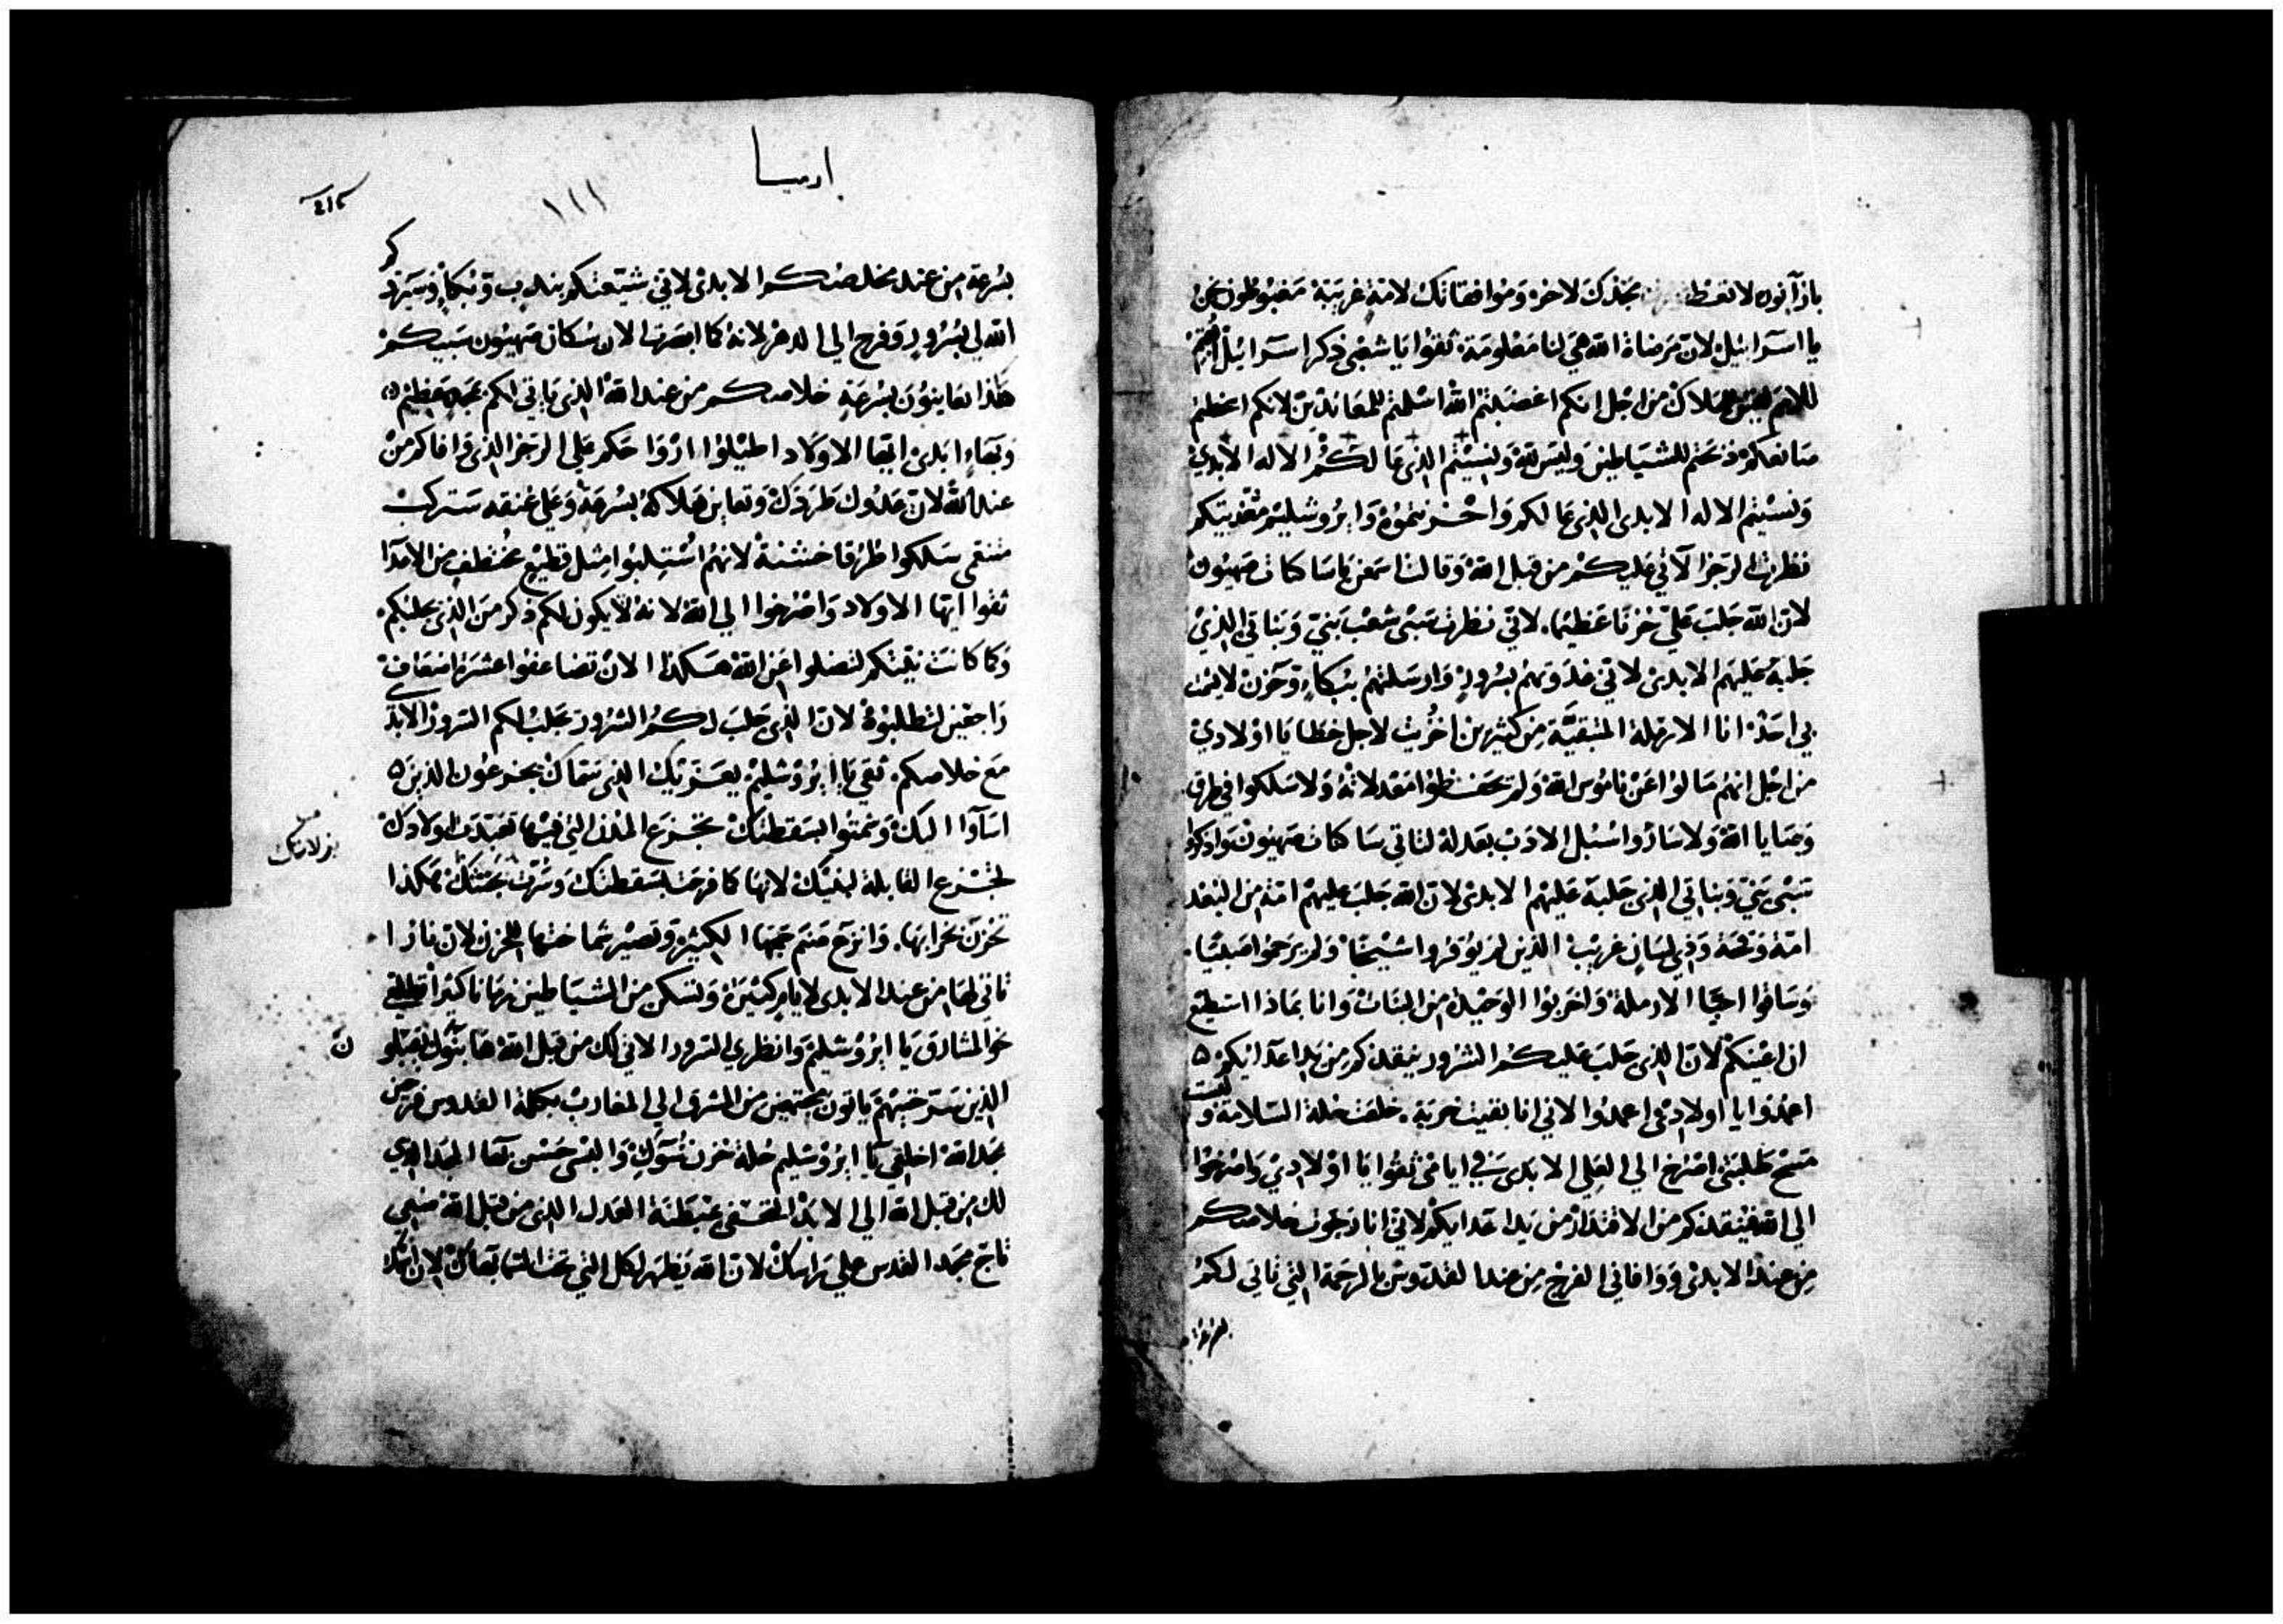 يا اسرائيل لان مرضاة الله هي لنا معلومة ثقوا يا شعبي ذكر اسرائيل
للامم ليس للهلاك من اجل انكم اغضبتم الله اسلمتم للمعاندين لانكم اغظتم
صانعكم ذبحتم للشياطين وليس لله ونسيتم الذي عالكم الاله الابدي
ونسيتم الاله الابدي الذي عالكم واحزنتموه وايروشليم مغذيتكم
نظرت الرجز الاتي عليكم من قبل الله وقالت اسمعن يا ساكنات صهيون
لان الله جلب علي حزنا عظيما. لاني نظرت سبي شعب بني وبناتي الذي
جلبه عليهم الابدي لاني غذوتهم بسرور وارسلتهم ببكاء وحزن لا يشمت
بي احد انا الارملة المتبقية من كثيرين اخربت لاجل خطايا اولادي
من اجل انهم مالوا عن ناموس الله ولم يحفظوا معدلاته ولا سلكوا في طرق
وصايا الله ولا ساروا سبل الادب بعدله لتاتي ساكنات صهيون واذكروا
سبي بني وبناتي الذي جلبه عليهم الابدي لان الله جلب عليهم امة من البعد
امة وقحة وذي لسان غريب الذين لم يوقروا شيخا ولم يرحموا صبيا.
وساقوا احبا الارملة واخربوا الوحيدة من البنات وانا بماذا استطيع
ان اعينكم لان الذي جلب عليكم الشرور ينقذكم من يد اعدائكم
اعمدوا يا اولادي اعمدوا لاني انا بقيت خربة. خلعت حلة السلامة ولبست
مسح طلبتي اصرخ الي العلي الابدي في ايامي ثقوا يا اولادي واصرخوا
الي الله فينقذكم من الاقتدار من يد اعدائكم لاني انا رجوت خلاصكم
من عند الابدي ووافاني الفرح من عند القدوس بالرحمة التي تاتي لكم
بسرعة
ارميا
بسرعة من عند مخلصكم الابدي لاني شيعتكم بندب وبكاء وسيرد
الله لي بسرور وفرح الي الدهر لانه كما ابصرت الان سكان صهيون سبيكم
هكذا يعاينون بسرعة خلاصكم من عند الله الذي ياتي لكم بمجد عظيم
وبهاء ابدي ايها الاولاد اطيلوا ارواحكم علي الرجز الذي وافاكم من
عند الله لان عدوك طردك وتعاين هلاكه بسرعة وعلي عنقه ستركب
متنعمي سلكوا طرقا خشنة لانهم استلبوا مثل قطيع مختطف من الاعدا
ثقوا ايها الاولاد واصرخوا الي الله لانه يكون لكم ذكر من الذي يجلبكم
وكما كانت نيتكم لتضلوا عن الله هكذا الان تضاعفوا عشرة اضعاف
راجعين لتطلبوه لان الذي جلب لكم الشرور يجلب لكم السرور الابدي
مع خلاصكم. ثقي يا ايروشليم يعزيك الذي سماك يجزعون الذين
اساوا اليك وشمتوا بسقطتك تجزع المدن التي فيها تعبدت اولادك
لتجزع القابلة لبنيك لانها كما فرحت بسقطتك وسرت بمحنتك هكذا
تحزن بخرابها. وانزع صنم جمعها الكبيرة وتصير شماختها للحزن لان نارا
تاتي لها من عند الابدي لايام كثيرة وتسكن من الشياطين زمانا كثيرا تطلعي
نحو المشارق يا ايروشليم وانظري السرور الاتي لك من قبل الله ها بنوك يقبلوا
الذين سرحتيهم ياتون مجتمعين من المشرق الي المغارب بكلمة القدوس فرحين
بمجد الله اخلعي يا ايروشليم حلة حزن سوك والبسي حسن بهاء المجد الذي
لك من قبل الله الي الابد التحفي غبطنة العدل الذي من قبل الله ضعي
تاج مجد القدس علي راسك لان الله يظهر لكل التي تحت السما بهاك لان اسمك